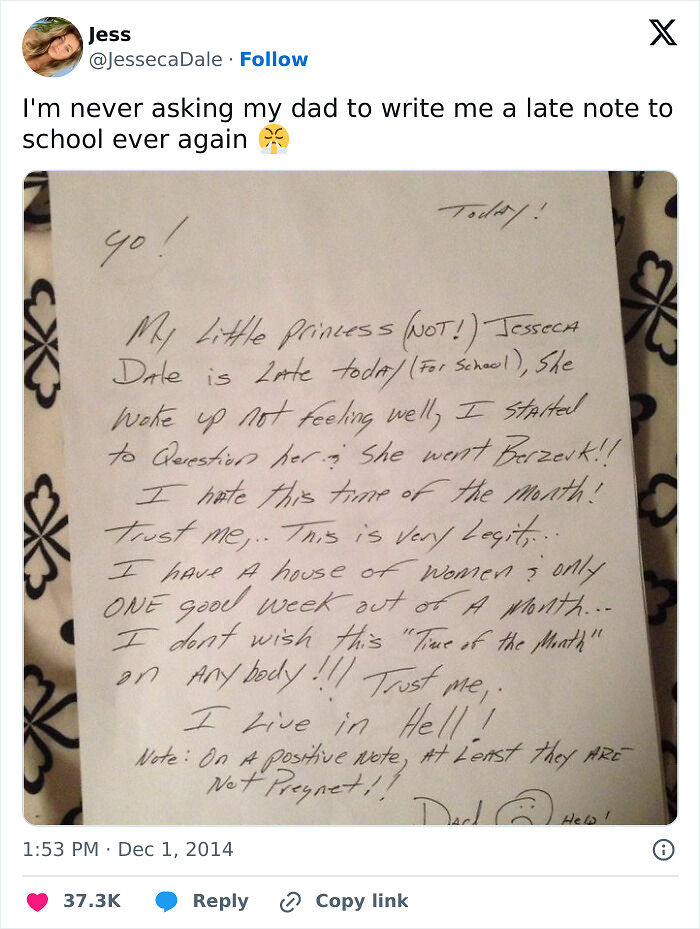 Jess
@JessecaDale · Follow
X
I'm never asking my dad to write me a late note to
school ever again 😤
Today!
yo!
My Little Princess (NOT!) Jesseca
Dale is Late today (For School), She
woke up not feeling well, I started
to Qeuestion her & She went Berzerk!!
I hate this time of the month!
Trust me,.. This is very Legit,...
I have A house of women & only
ONE good week out of A month...
I dont wish this "Time of the Month"
on Anybody!!! Trust me,.
I Live in Hell!
Note: On A positive Note, At Least they ARE
Not Pregnet!!
Dad Help!
1:53 PM · Dec 1, 2014
37.3K Reply Copy link